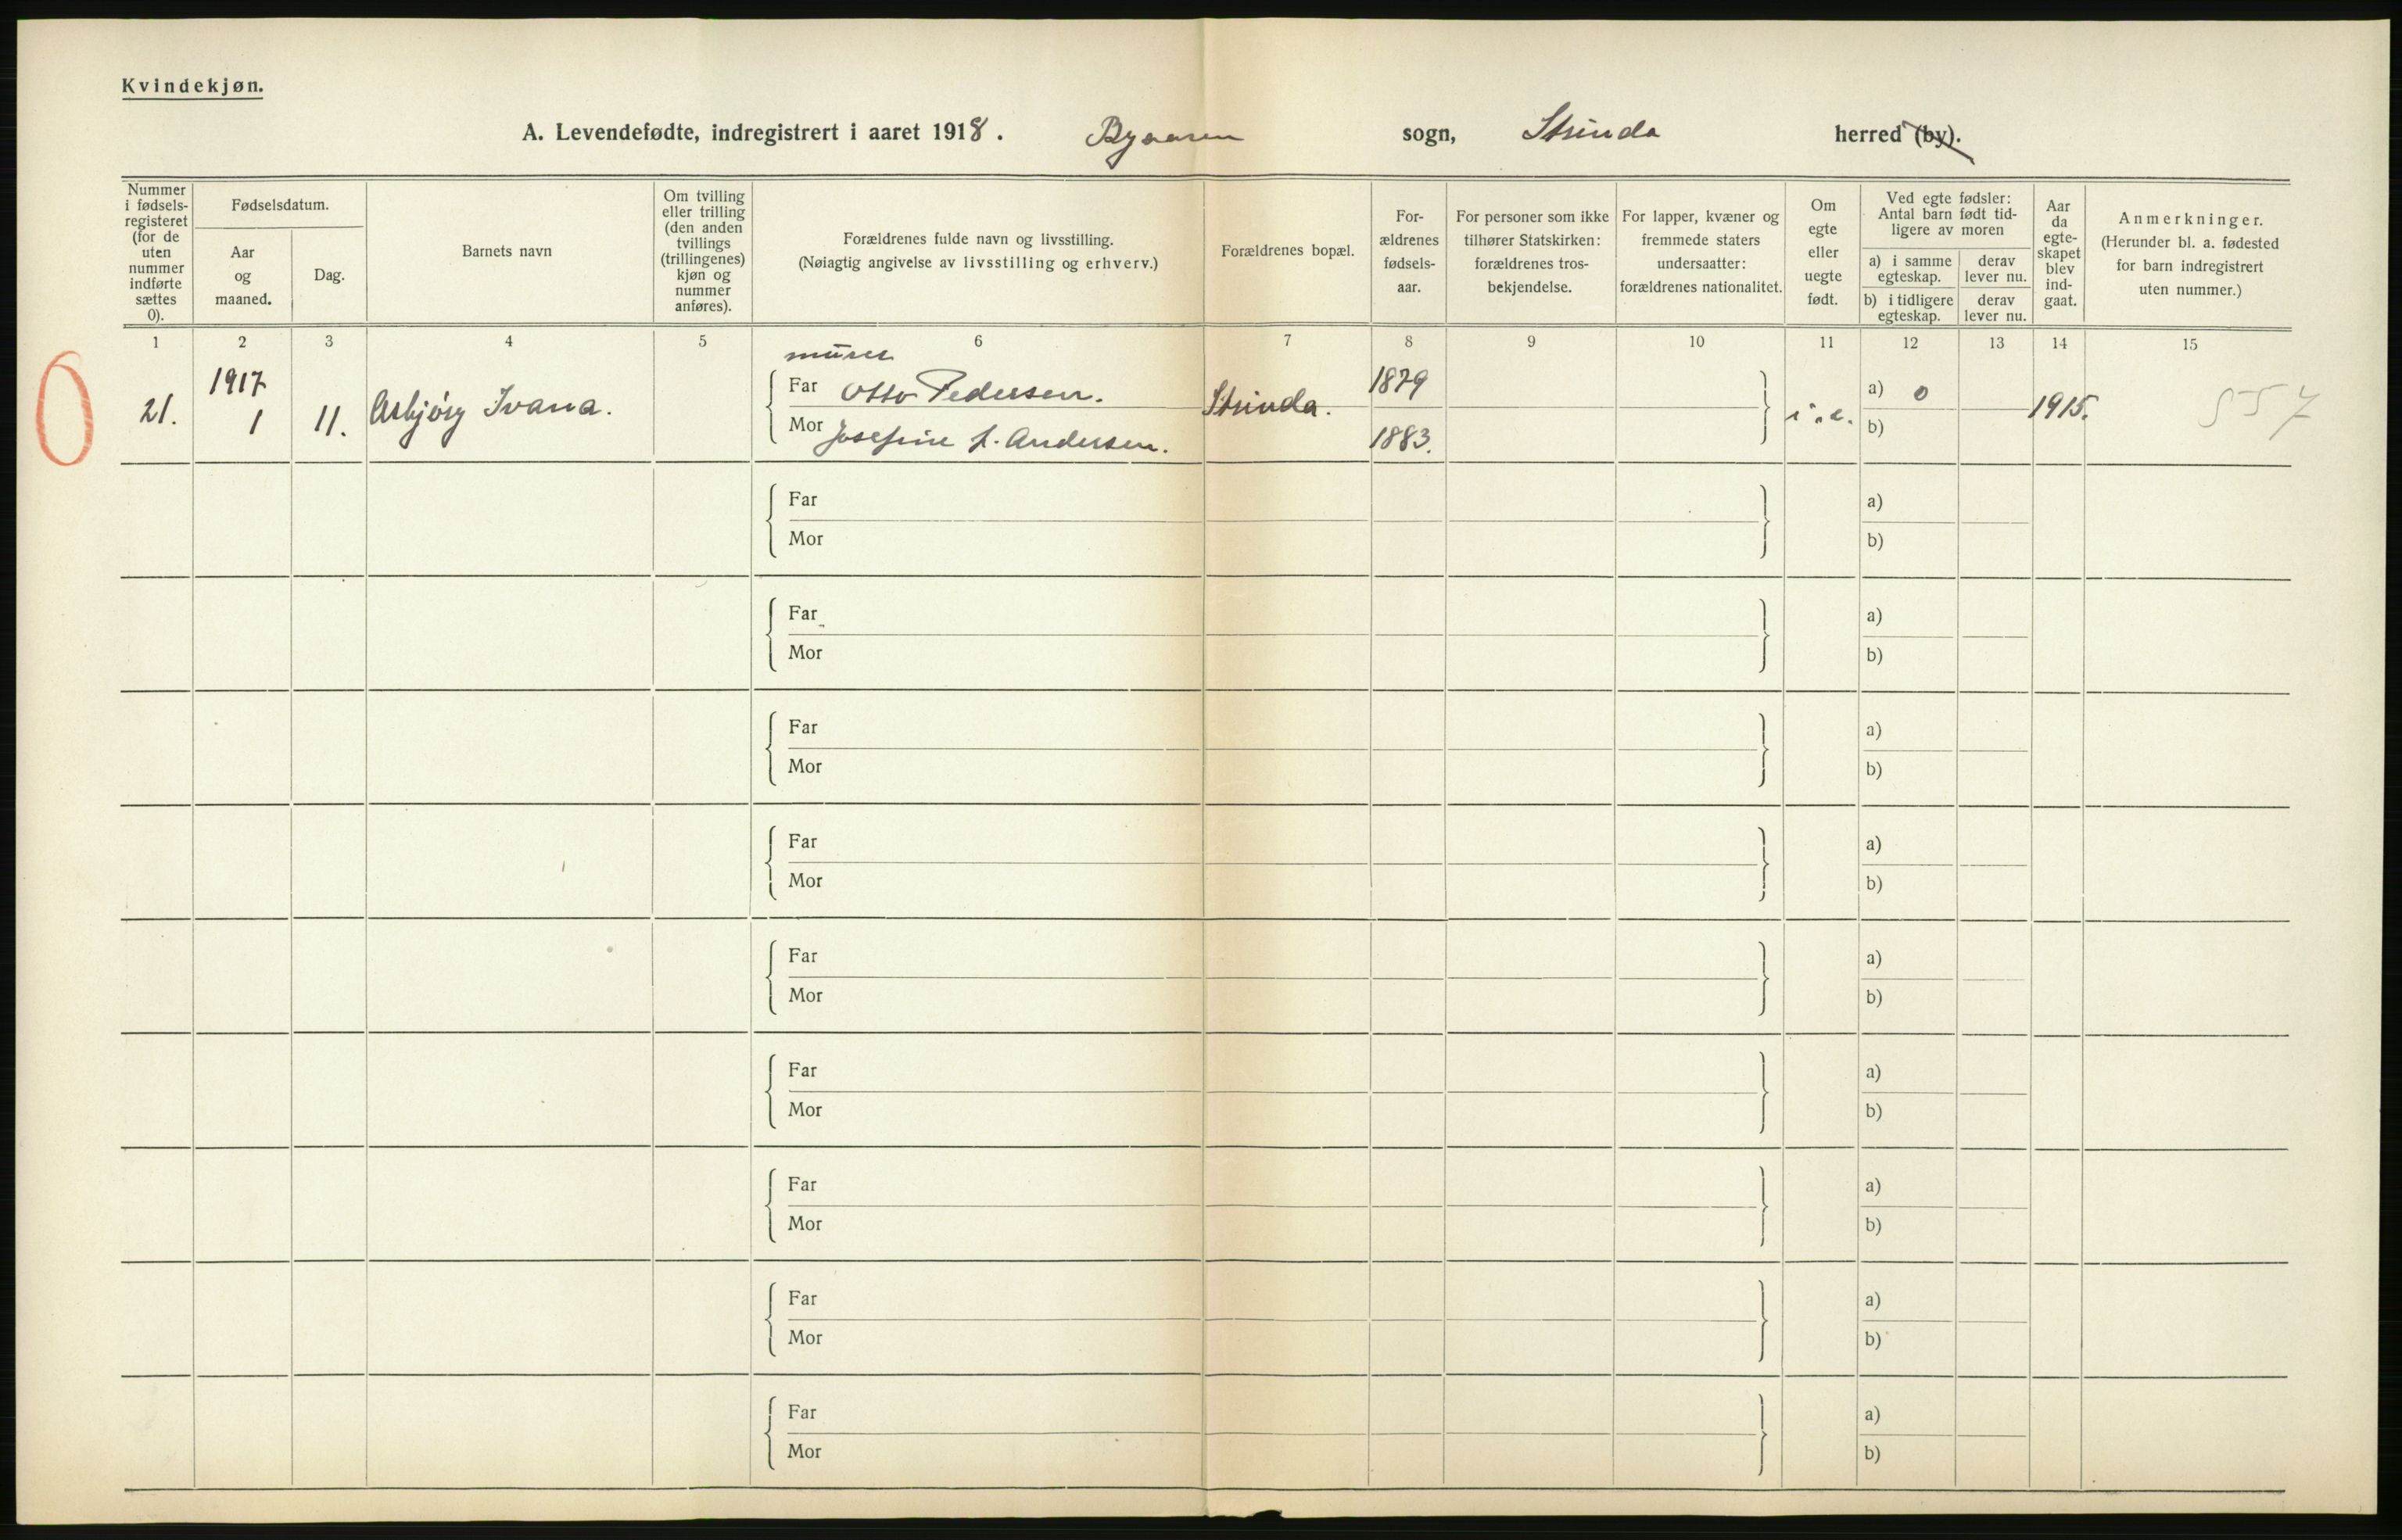 Kvindekjøn.
A. Levendefødte, indregistrert i aaret 1918. Byaasen sogn, Strinda herred (by).
Nummer i fødsels-registeret (for de uten nummer indførte sættes 0).
Fødselsdatum.
Aar og maaned.
Dag.
Barnets navn
Om tvilling eller trilling (den anden tvillings (trillingenes) kjøn og nummer anføres).
Forældrenes fulde navn og livsstilling.
(Nøiagtig angivelse av livsstilling og erhverv.)
Forældrenes bopæl.
For-ældrenes fødsels-aar.
For personer som ikke tilhører Statskirken: forældrenes tros-bekjendelse.
For lapper, kvæner og fremmede staters undersaatter: forældrenes nationalitet.
Om egte eller uegte født.
Ved egte fødsler: Antal barn født tid-ligere av moren
a) i samme egteskap.
derav lever nu.
b) i tidligere egteskap.
derav lever nu.
Aar da egte-skapet blev ind-gaat.
Anmerkninger.
(Herunder bl. a. fødested for barn indregistrert uten nummer.)
1 2 3 4 5 6 7 8 9 10 11 12 13 14 15
murer
1917
Far Otto Pedersen. 1879 a) 0
21. 1 11. Asbjørg Ivana. Strinda. i.e. 1915. 557
Mor Josefine L. Andersen. 1883. b)
Far a)
Mor b)
Far a)
Mor b)
Far a)
Mor b)
Far a)
Mor b)
Far a)
Mor b)
Far a)
Mor b)
Far a)
Mor b)
Far a)
Mor b)
Far a)
Mor b)